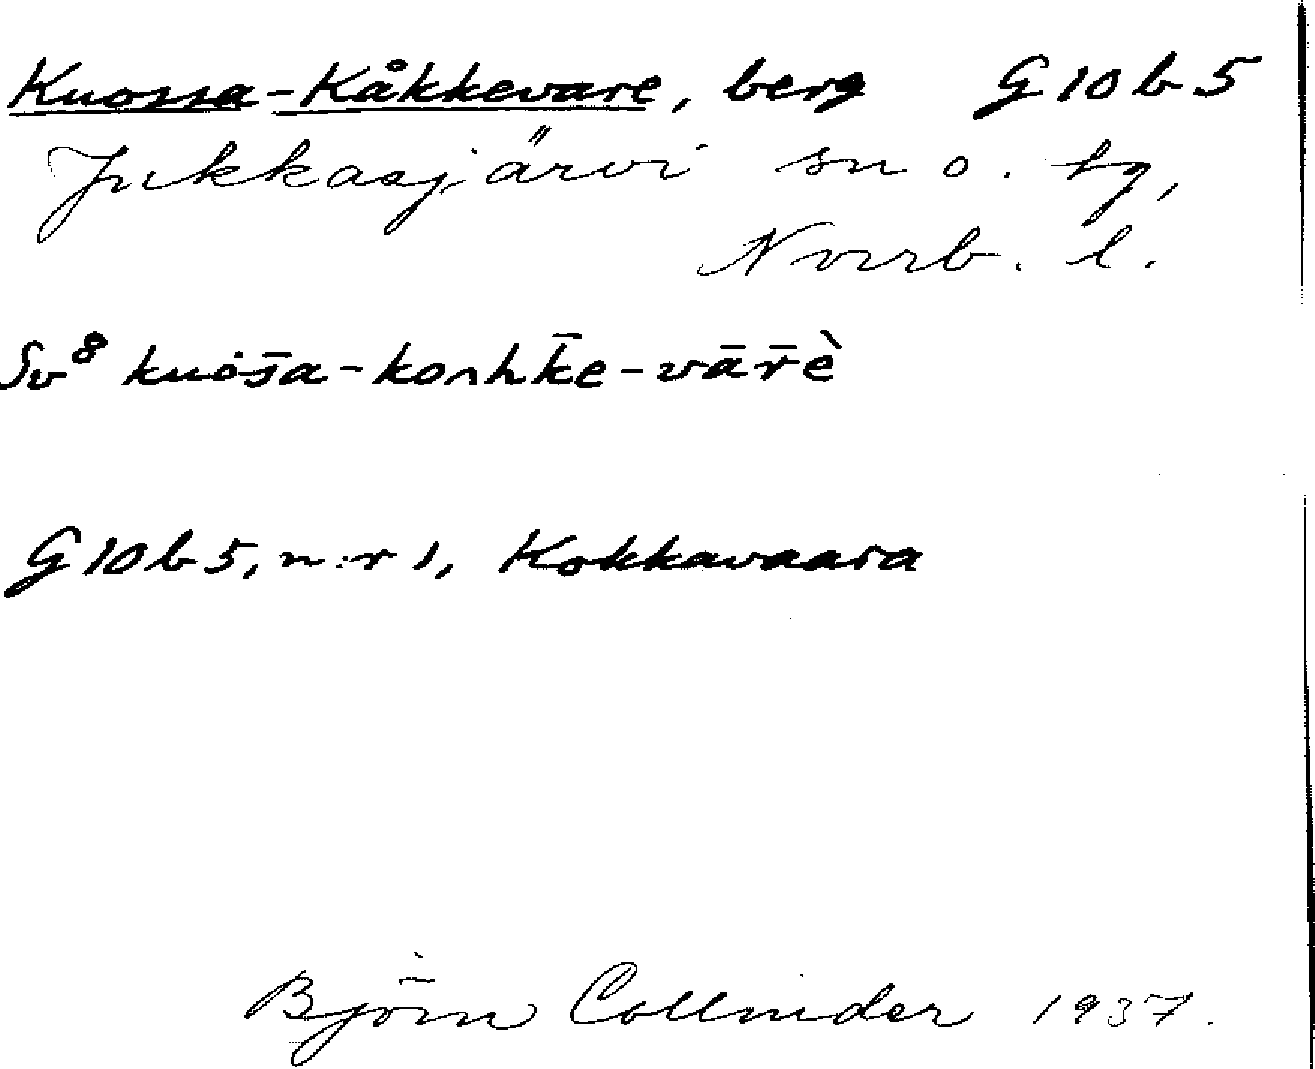 Kuossa-Kåkkevare, berg G 10 b 5
Jukkasjärvi sn o. tg,
Norrb. l.
Sv⁸ kuȯs̄a-koλk̄e-vār̄è
G 10 b 5, n:r 1, Kokkavaara
Björn Collinder 1937.